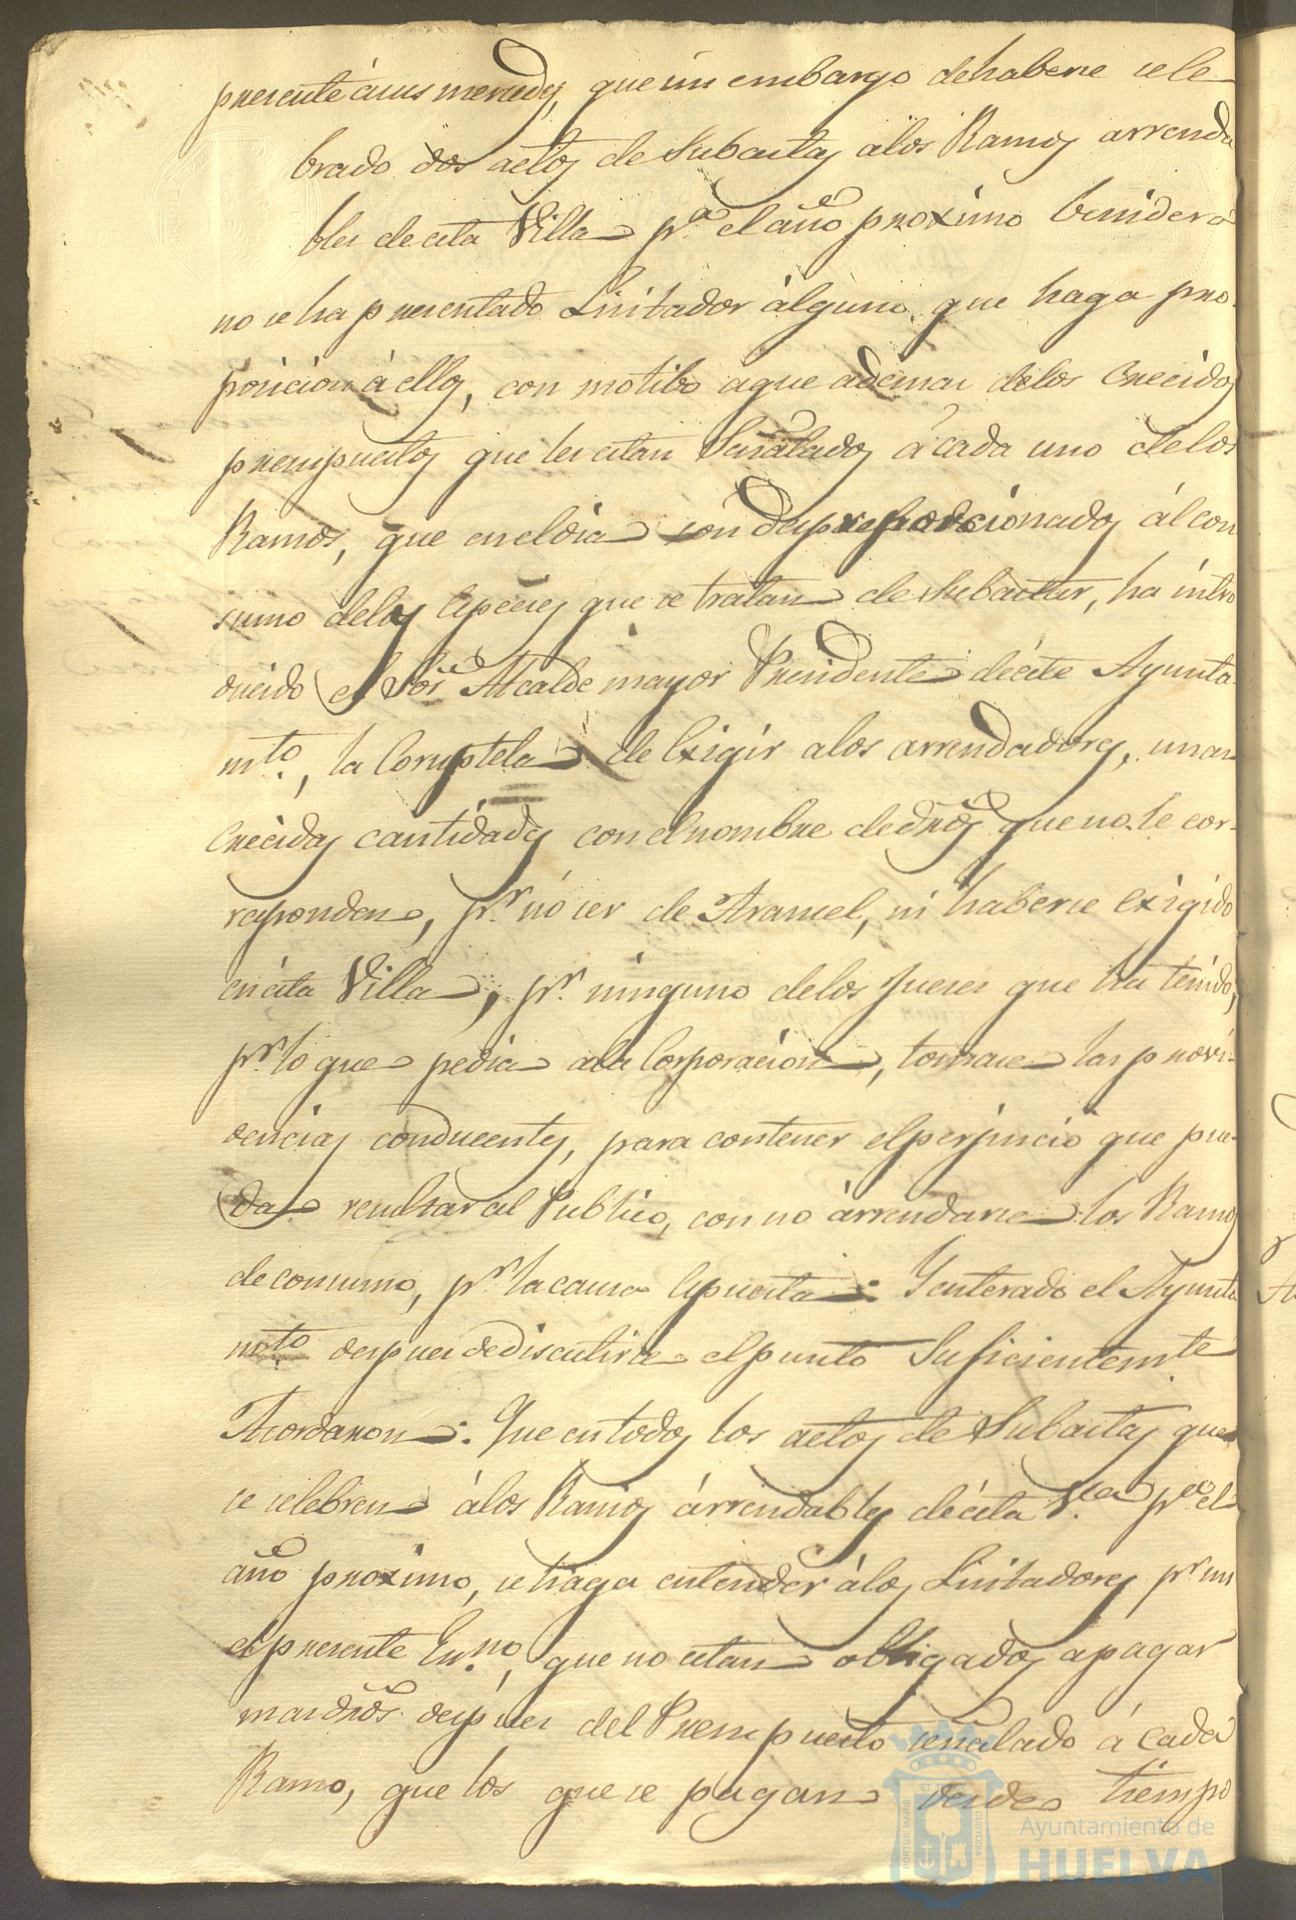 presente á sus mercedes, que sin embargo de haberse cele
brado dos actos de Subastas á los Ramos arrenda
bles de esta Villa pª. el año proximo benidero
no se ha presentado Licitador álguno que haga pro-
posicion á ellos, con motibo aque ademas delos Crecidos
presupuestos que les estan Señalados á cada uno delos
Ramos, que en el dia son desproporcionados ál con
sumo delas Especies que se tratan de Subastar, ha intro
ducido el Sor. Alcalde mayor Presidente déeste Ayunta
mto., la Corruptela de Exigir alos arrendadores, unas
Crecidas cantidades con el nombre de dros que no le cor-
responden, pr. nó ser de Arancel, ni haberse Exigido
en ésta Villa, pr. ninguno delos Jueces que ha tenido,
pr. lo que pedia ala Corporacion, tomase las provi-
dencias conducentes, para contener el perjuicio que pue-
da resultar al Publico, con no árrendarse los Ramos
de consumo, pr. la causa Espuesta: Y enterado el Ayunta
mto. despues de discutirse el punto Suficientemte.
Acordaron: Que en todos los actos de Subastas que
se celebren álos Ramos árrendables déesta Vª. pª. el
año proximo, se haga entender álos Licitadores pr. mi
el presente Esno., que no estan obligados apagar
mas dros. despues del Presupuesto señalado á cada
Ramo, que los que se pagan desde tiempo
Ayuntamiento de
HUELVA